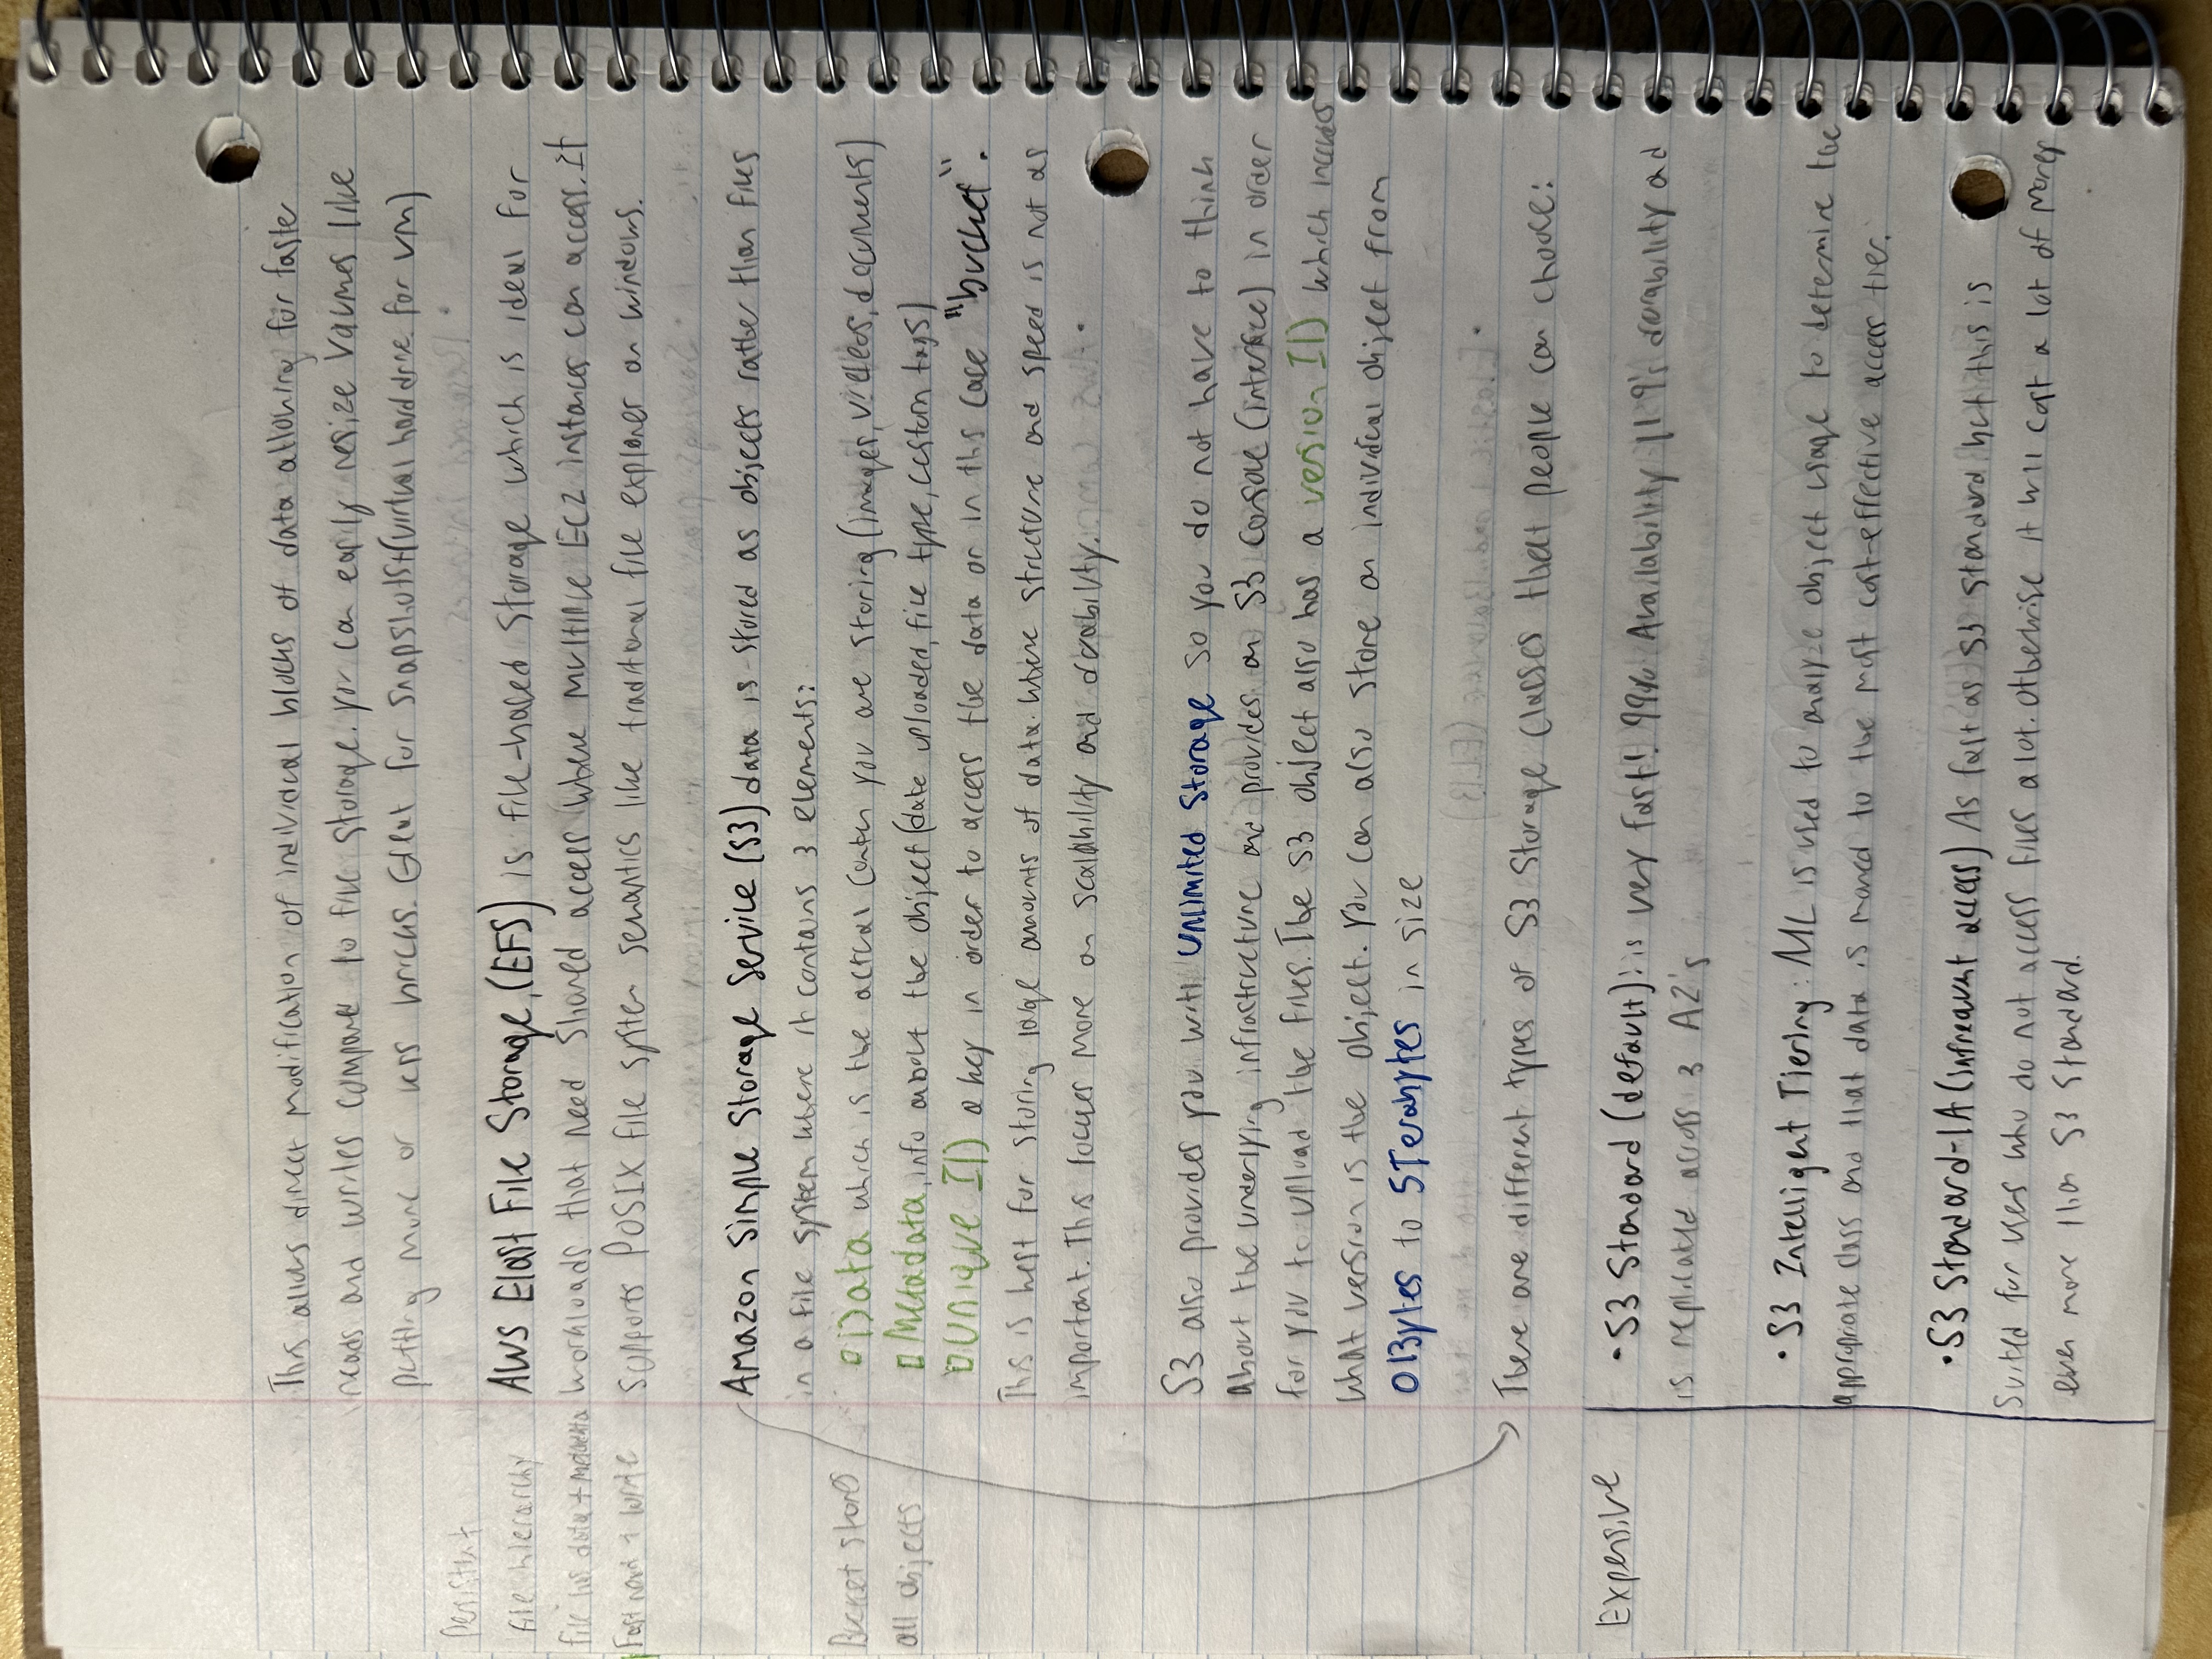 This allows direct modification of individual blocks of data allowing for faster
reads and writes compare to file storage. you can easily resize volumes like
putting more or less bricks. Great for snapshots+(virtual hard drive for VM)
Persistent
File hierarchy
AWS Elast File Storage, (EFS) is file-based storage which is ideal for
File has data + metadata
workloads that need shared access where multiple EC2 instances can access. It
Fast read + write
supports POSIX file system semantics like traditional file explorer on windows.
Amazon Simple Storage Service (S3) data is stored as objects rather than files
in a file system where it contains 3 elements:
Bucket stores
all objects
Data which is the actual conten you are storing (images, videos, documents)
Metadata, info about the object (date uploaded, file type, custom tags)
Unique ID a key in order to access the data or in this case "bucket".
This is best for storing large amounts of data where structure and speed is not as
important. This focuses more on scalability and durability.
S3 also provides you with unlimited storage so you do not have to think
about the underlying infrastructure and provides an S3 console (interface) in order
for you to upload the files. The S3 object also has a version ID which includes
what version is the object. You can also store an individual object from
0 Bytes to 5 Terabytes in size
There are different types of S3 Storage classes that people can choose:
Expensive
• S3 Standard (default): is very fast! 99% Availability 11 9's durability and
is replicated across 3 AZ's
• S3 Intelligent Tiering: ML is used to analyze object usage to determine the
appropriate class and that data is moved to the most cost-effective access tier.
• S3 Standard-IA (infrequent access) As fast as S3 standard but this is
suited for users who do not access files a lot. otherwise it will cost a lot of money
even more than S3 Standard.